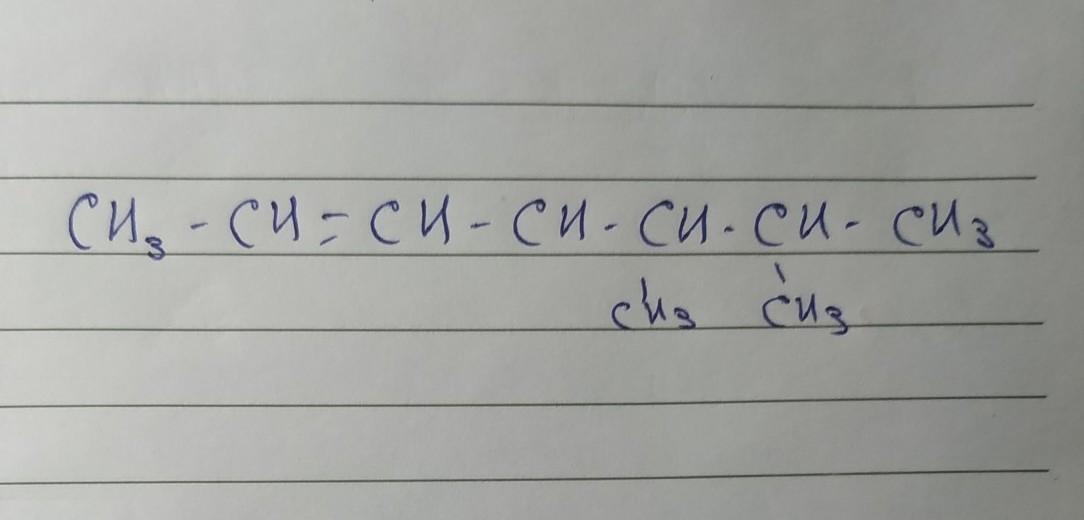 CH3 - CH = CH - CH - CH - CH - CH3
CH3 CH3